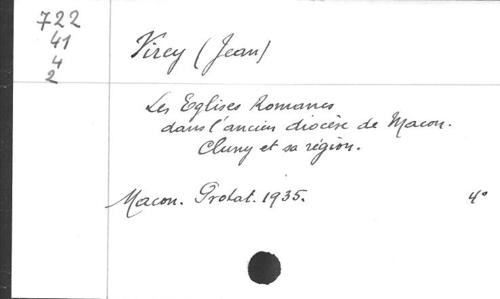 722
41
4
2
Virey (Jean)
Les Eglises Romanes
dans l'ancien diocèse de Macon.
Cluny et sa région.
Macon. Protat. 1935. 4°